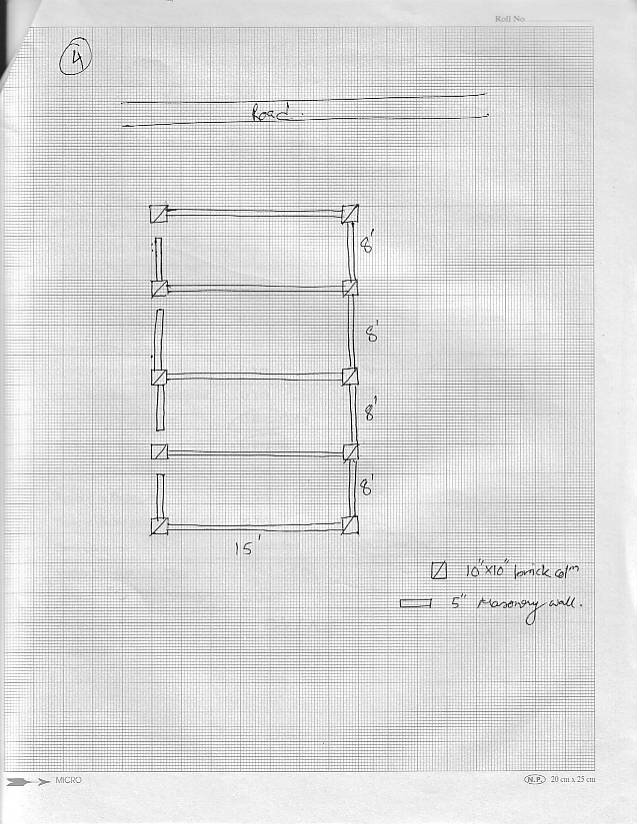 Roll No
4
Road.
8'
8'
8'
8'
15'
10"x10" brick colm
5" Masonry wall.
MICRO
N.P. 20 cm x 25 cm